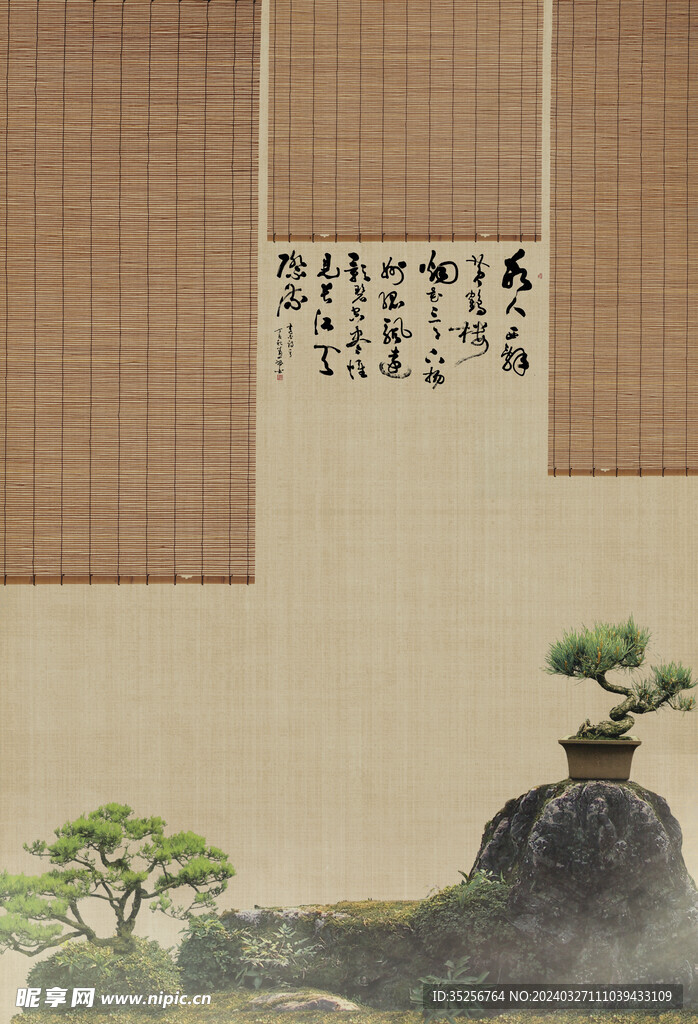 故人西辭
黄鶴楼
烟花三月下揚
州孤帆遠
影碧空盡惟
見長江天
際流
昵享网 www.nipic.cn
ID:35256764 NO:20240327111039433109